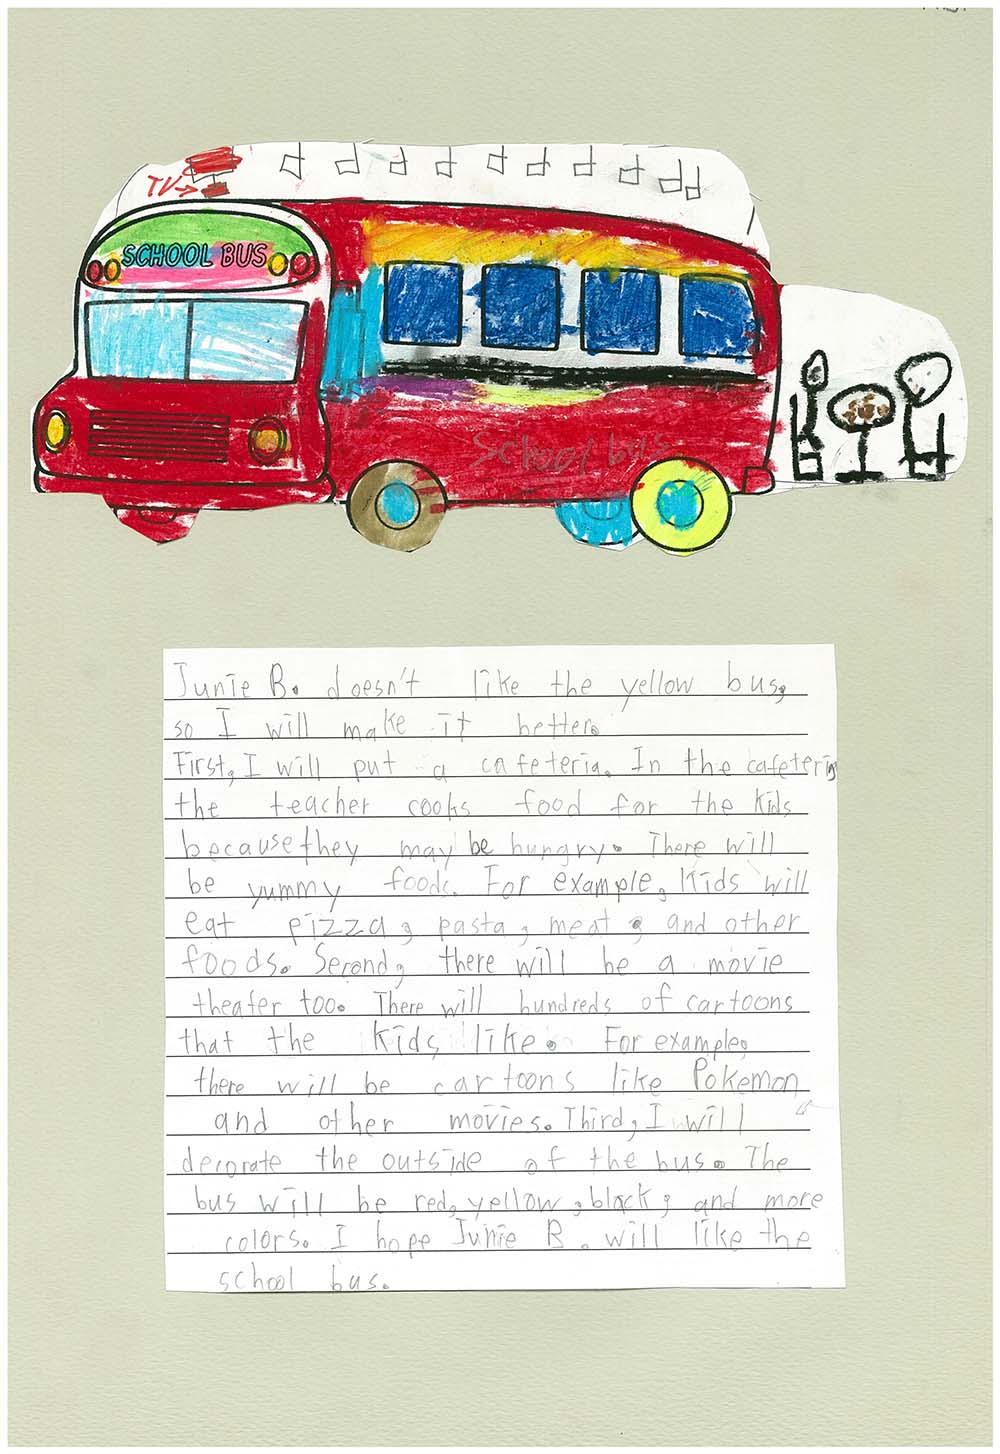 TV→
SCHOOL BUS
School bus
Junie B. doesn't like the yellow bus,
so I will make it better.
First, I will put a cafeteria. In the cafeteria
the teacher cooks food for the kids
because they may be hungry. There will
be yummy foods. For example, Kids will
eat pizza, pasta, meat, and other
foods. Second, there will be a movie
theater too. There will hundreds of cartoons
that the kids like. For example,
there will be cartoons like Pokemon
and other movies. Third, I will
decorate the outside of the bus. The
bus will be red, yellow, black, and more
colors. I hope Junie B. will like the
school bus.